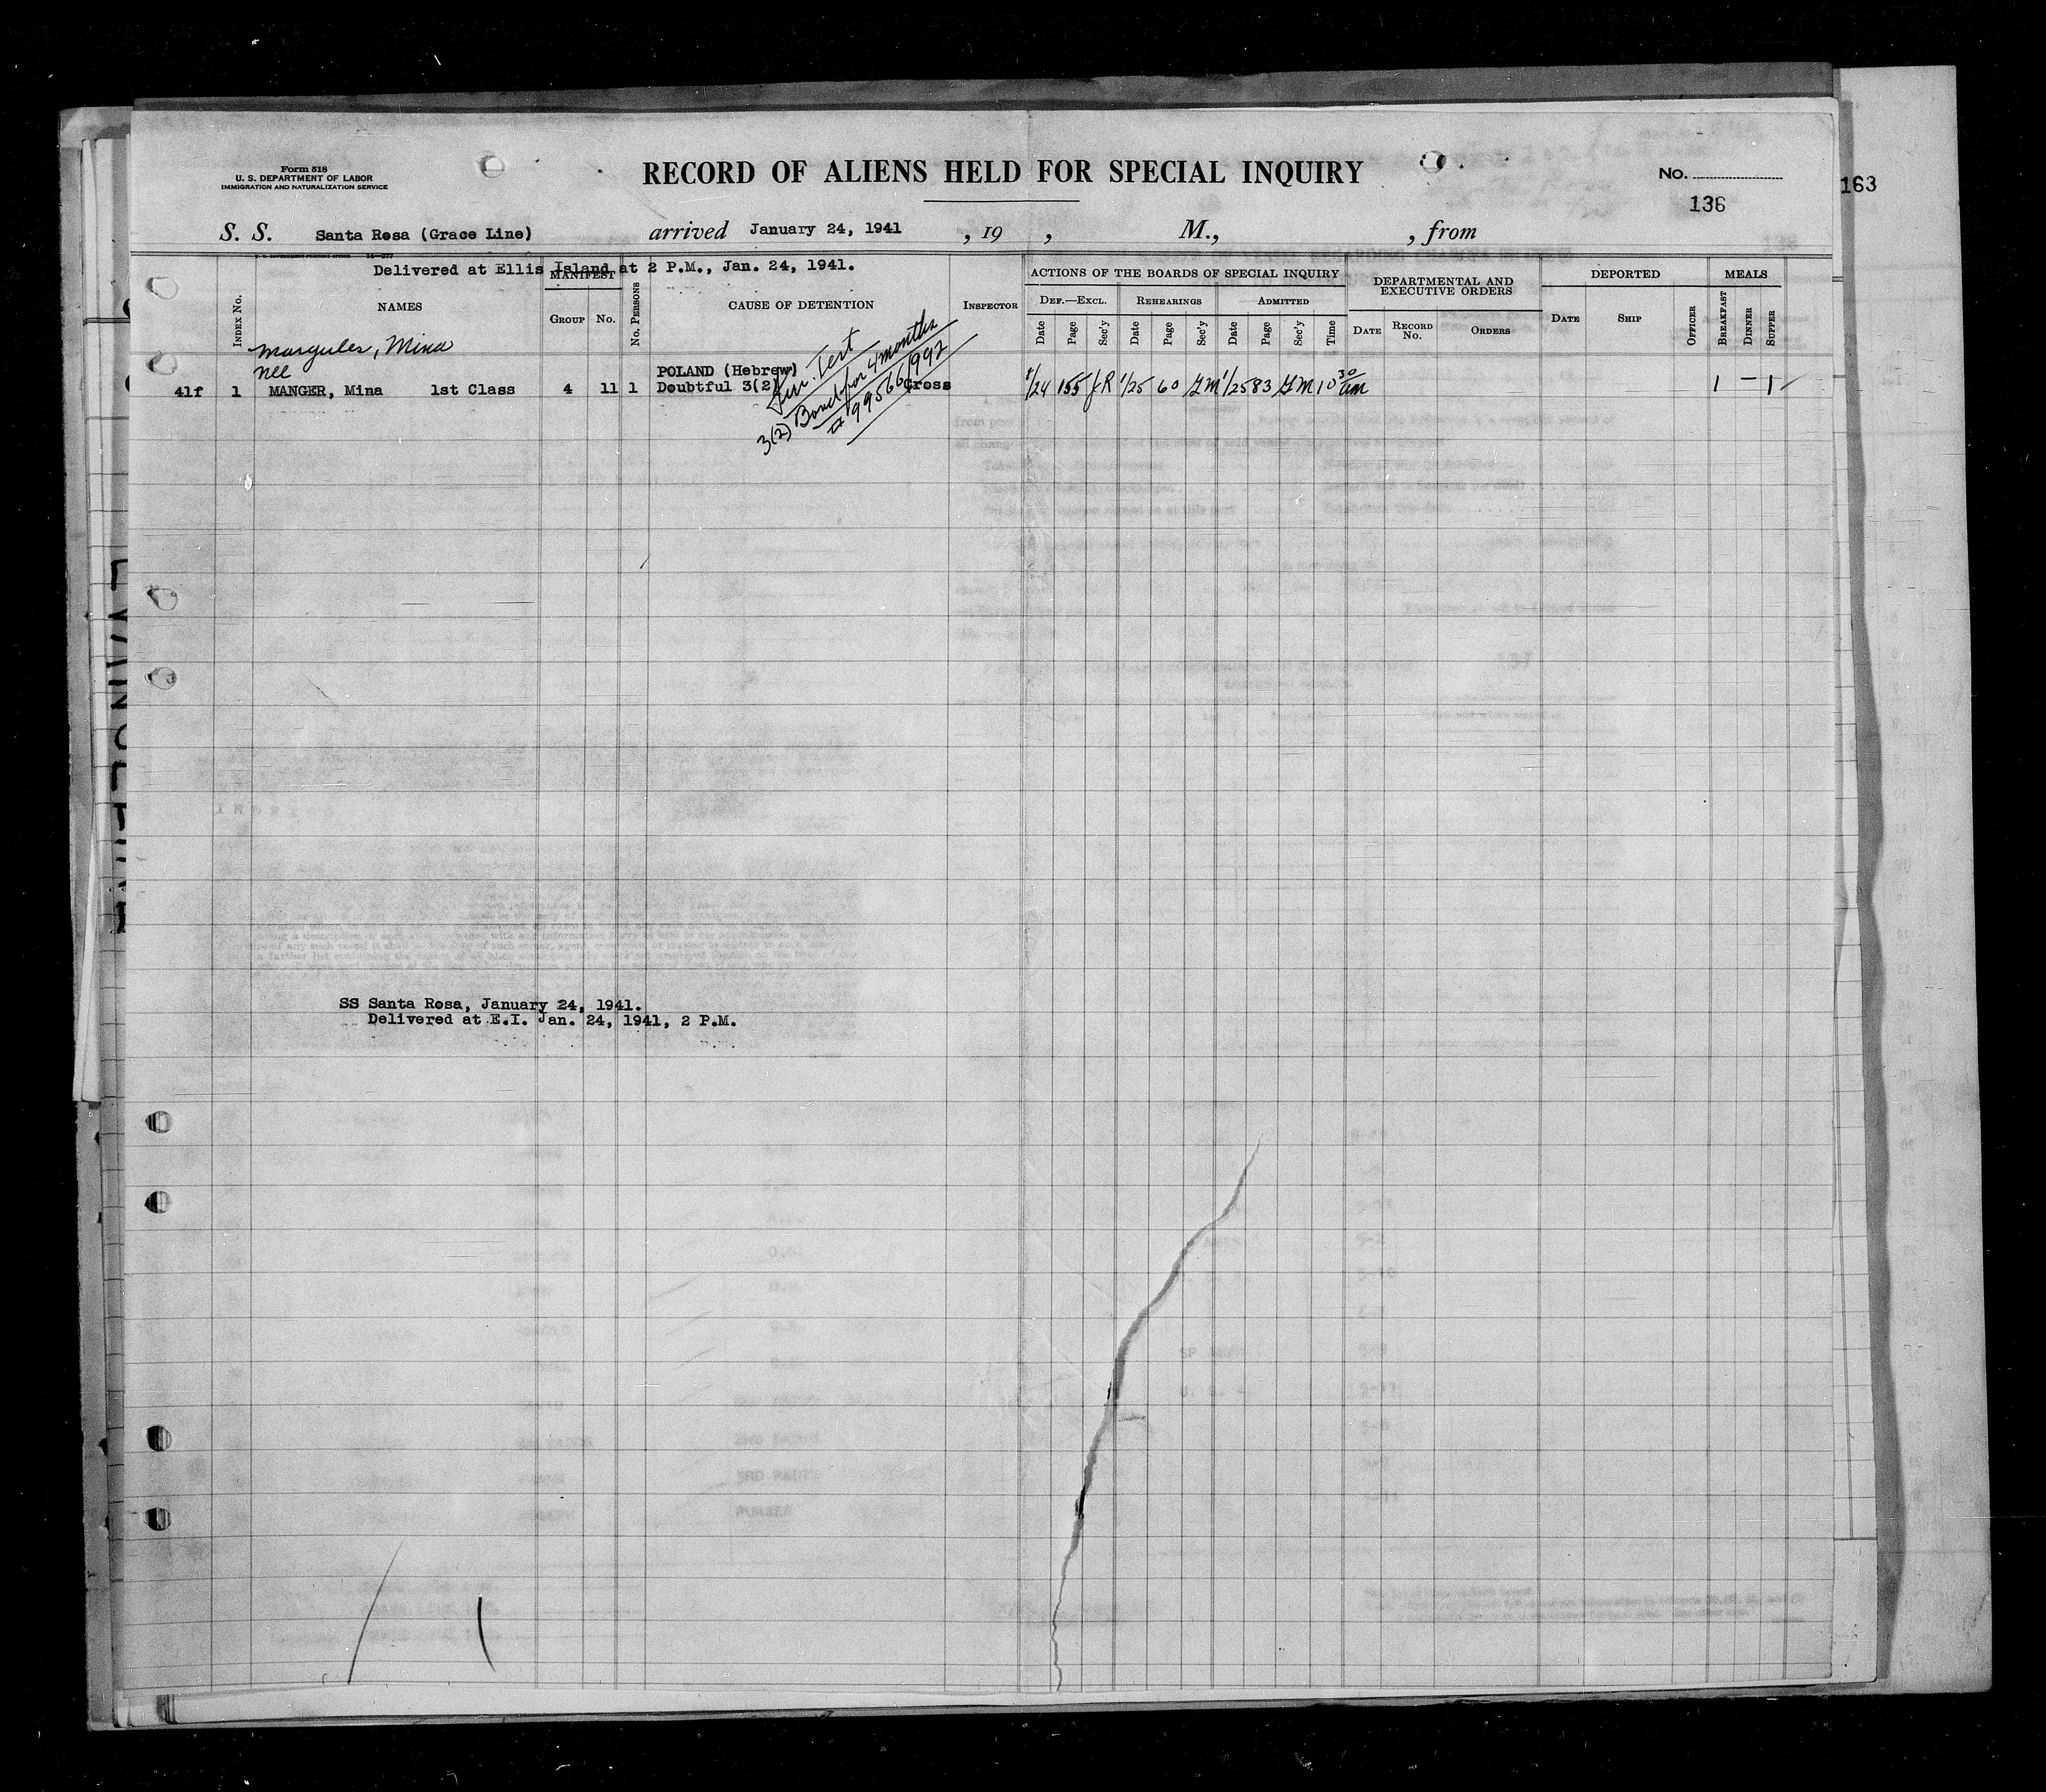 Form 518
U. S. DEPARTMENT OF LABOR
IMMIGRATION AND NATURALIZATION SERVICE
RECORD OF ALIENS HELD FOR SPECIAL INQUIRY
No.
136
163
S. S. Santa Rosa (Grace Line) arrived January 24, 1941 , 19 , M., , from
Delivered at Ellis Island at 2 P.M., Jan. 24, 1941.
INDEX No.
NAMES
MANIFEST
GROUP No.
No. PERSONS
CAUSE OF DETENTION
INSPECTOR
ACTIONS OF THE BOARDS OF SPECIAL INQUIRY
DEF.—EXCL. REHEARINGS ADMITTED
Date Page Sec'y Date Page Sec'y Date Page Sec'y Time
DEPARTMENTAL AND
EXECUTIVE ORDERS
DATE RECORD No. ORDERS
DEPORTED
DATE SHIP OFFICER
MEALS
BREAKFAST DINNER SUPPER
Margules, Mina
nee
POLAND (Hebrew)
41f 1 MANGER, Mina 1st Class 4 11 1 Doubtful 3(2) Gross 1/24 155 JR 1/25 60 GM 1/25 83 GM 10 30 am 1 — 1
3(2) Bond for 4 months
# 99566/992
SS Santa Rosa, January 24, 1941.
Delivered at E.I. Jan. 24, 1941, 2 P.M.